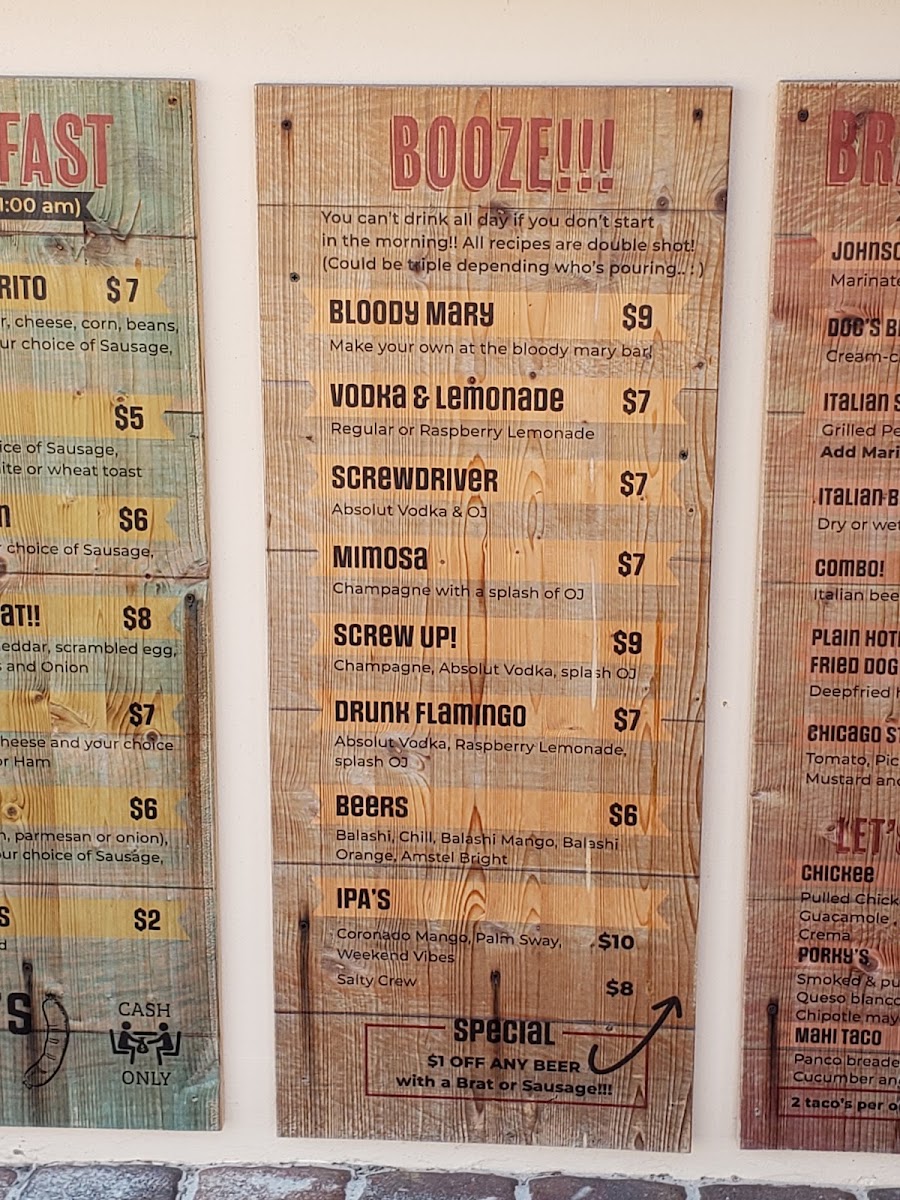 FAST
1:00 am)
RITO $7
r, cheese, corn, beans,
ur choice of Sausage,
$5
ice of Sausage,
ite or wheat toast
n $6
choice of Sausage,
at!! $8
eddar, scrambled egg,
and Onion
$7
heese and your choice
or Ham
$6
n, parmesan or onion),
ur choice of Sausage,
s $2
d
'S
CASH
ONLY
BOOZE!!!
You can't drink all day if you don't start
in the morning!! All recipes are double shot!
(Could be triple depending who's pouring.. : )
Bloody Mary $9
Make your own at the bloody mary bar!
Vodka & Lemonade $7
Regular or Raspberry Lemonade
Screwdriver $7
Absolut Vodka & OJ
Mimosa $7
Champagne with a splash of OJ
Screw Up! $9
Champagne, Absolut Vodka, splash OJ
Drunk Flamingo $7
Absolut Vodka, Raspberry Lemonade,
splash OJ
Beers $6
Balashi, Chill, Balashi Mango, Balashi
Orange, Amstel Bright
IPA'S
Coronado Mango, Palm Sway, $10
Weekend Vibes
Salty Crew $8
Special
$1 OFF ANY BEER
with a Brat or Sausage!!!
BR
Johnso
Marinate
Dog's B
Cream-c
Italian S
Grilled Pe
Add Mari
Italian B
Dry or wet
Combo!
Italian bee
Plain Hot
Fried Dog
Deepfried h
Chicago St
Tomato, Pic
Mustard and
LET'S
Chickee
Pulled Chick
Guacamole,
Crema
Porky's
Smoked & pu
Queso blanco
Chipotle may
Mahi Taco
Panco breade
Cucumber an
2 taco's per o